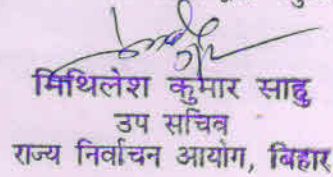 मिथिलेश कुमार साहु
उप सचिव
राज्य निर्वाचन आयोग, बिहार